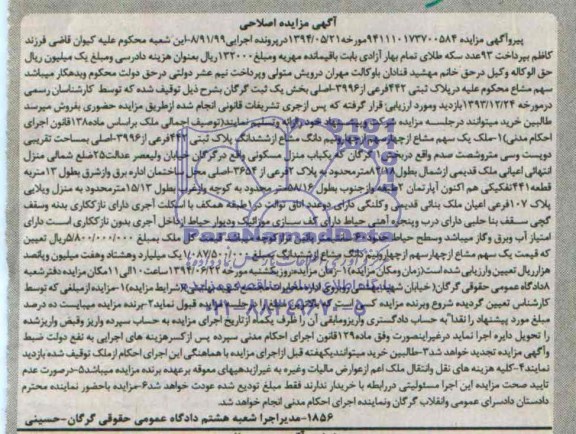 آگهی مزایده اصلاحی
پیروآگهی مزایده ۹۴۱۱۱۰۱۷۳۷۰۰۵۸۴مورخه۱۳۹۴/۰۵/۲۱درپرونده اجرایی۸/۹۱/۹۹-این شعبه محکوم علیه کیوان قاضی فرزند
کاظم بپرداخت ۹۳عدد سکه طلای تمام بهار آزادی بابت باقیمانده مهریه ومبلغ۱۳۲۰۰۰ریال بعنوان هزینه دادرسی ومبلغ یک میلیون ریال
حق الوکاله وکیل درحق خانم مهشید فنادان باوکالت مهران درویش متولی وپرداخت نیم عشر دولتی درحق دولت محکوم وبدهکار میباشد
سهم مشاع محکوم علیه درپلاک ثبتی ۴۴۲فرعی از۳۹۹۶-اصلی بخش یک ثبت گرگان بشرح ذیل توقیف شده که توسط کارشناسان رسمی
درمورخه ۱۳۹۳/۱۲/۲۴بازدید ومورد ارزیابی قرار گرفته که پس ازجری تشریفات قانونی انجام شده ازطریق مزایده حضوری بفروش میرسد
طالبین خرید میتوانند درجلسه مزایده شرکت نمایند(توصیف اجمالی ملک براساس ماده۱۳۸قانون اجرای
احکام مدنی)۱-ملک یک سهم مشاع ازچهار دانگ مشاع ازششدانگ پلاک ثبتی ۴۴۲فرعی از۳۹۹۶-اصلی بمساحت تقریبی
دویست وسی متروشصت صدم واقع در گرگان که یکباب منزل مسکونی واقع درگرگان خیابان ولیعصر عدالت۲۵ضلع شمالی منزل
انتهائی اعیانی ملک قدیمی ازشمال بطول محدودبه پلاک ۲فرعی از ۳۶۵۴-اصلی محل ساختمان اداره برق وازشرق بطول ۱۳متربه
قطعه۴۴۱تفکیکی هم اکنون آپارتمان ۳طبقه وازجنوب بطول محدود به کوچه وازغرب بطول ۱۵/۱۳مترمحدود به منزل ویلایی
پلاک ۱۰۷فرعی اعیان ملک بنائی قدیمی وکلنگی دارای دوعدد اتاق توالت در۱طبقه همکف با اسکلت آجری دارای نازککاری بدنه وسقف
گچی سقف بنا حلبی دارای درب وپنجره آهنی حیاط دارای کف سازی موزائیک ودیوار حیاط ازداخل آجری بدون نازککاری است دارای
امتیاز آب وبرق وگاز میباشد وسطح حیاط قیمت کل ملک بمبلغ ۵/۸۰۰/۰۰۰/۰۰۰ریال تعیین
که قیمت یک سهم مشاع ازچهار سهم ازچهارونیم دانگ مشاع ازششدانگ بمبلغ یک میلیارد وهشتاد وهفت میلیون وپانصد
هزارریال تعیین وارزیابی شده است(زمان ومکان مزایده)۱-زمان مزایده:روزیکشنبه مورخه ۱۳۹۴/۰۶/۲۲ ساعت۱۰الی۱۱مکان مزایده دفترشعبه
۸دادگاه عمومی حقوقی گرگان(خیابان شهید (شرایط مزایده)۱-مزایده ازمبلغی که توسط
کارشناس تعیین گردیده شروع وبرنده مزایده کسی است که درجلسه مزایده قبول نماید۲-برنده مزایده میبایست ده درصد
مبلغ مورد پیشنهاد را نقدا"به حساب دادگستری واریزومابقی آن را ظرف یکماه ازتاریخ اجرای مزایده به حساب سپرده واریز وقبض واریزشده
را تحویل دایره اجرا نماید درغیراینصورت وفق ماده۱۲۹قانون اجرای احکام مدنی سپرده پس ازکسرهزینه های اجرایی به نفع دولت ضبط
وآگهی مزایده تجدید خواهد شد۳-طالبین خرید میتوانندیکهفته قبل ازاجرای مزایده با هماهنگی این اجرای احکام ازملک توقیف شده بازدید
نمایند۴-کلیه هزینه های نقل وانتقال ملک اعم ازعوارض مالیات وغیره به غیرازبدهیهای معوقه برعهده برنده مزایده میباشد۵-درصورت عدم
تایید صحت مزایده این اجرا مسئولیتی دررابطه با خریدار ندارند فقط مبلغ تودیع شده عودت خواهد شد۶-مزایده باحضور نماینده محترم
دادستان دادسرای عمومی وانقلاب گرگان ونماینده اجرای احکام مدنی انجام خواهد شد.
۱۸۵۶-مدیراجرا شعبه هشتم دادگاه عمومی حقوقی گرگان-حسینی
ParsNamadData
۰۲۱-۸۸۳۴۹۶۷۰-۵